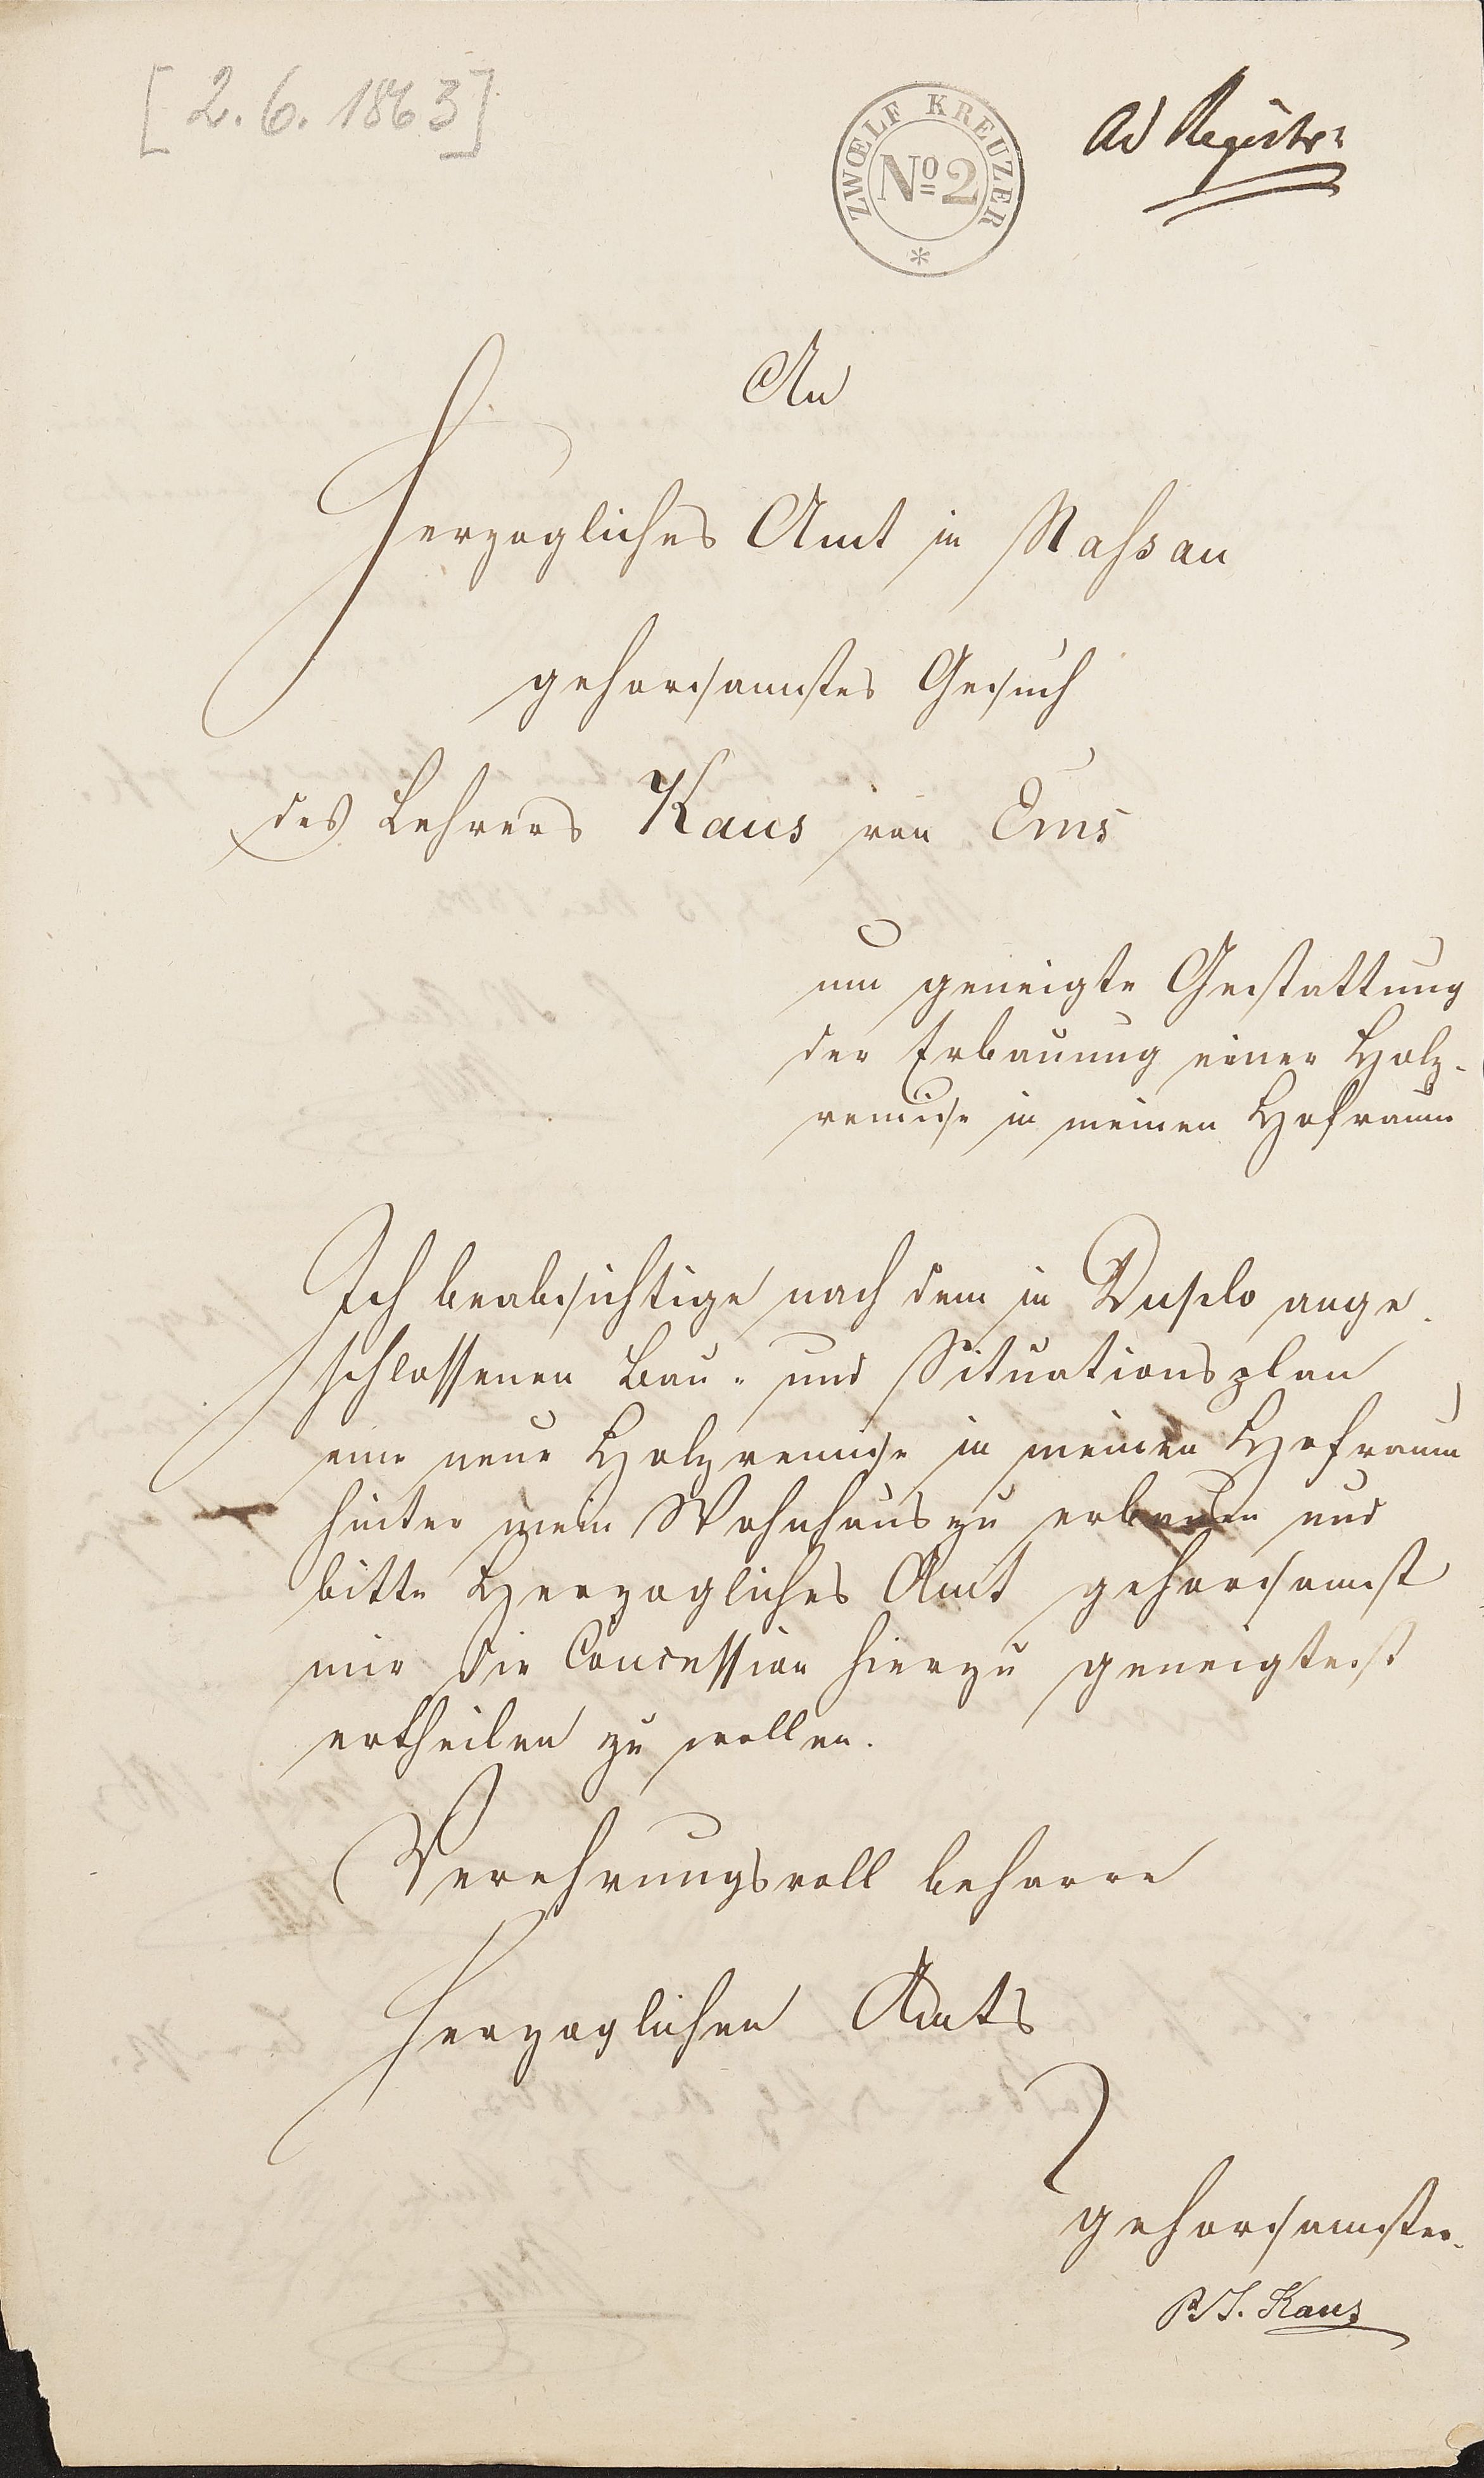 [2.6.1863]
ZWŒLF KREUZER
No 2
*
Ad Registr.
An
Herzogliches Amt in Nassau
gehorsamstes Gesuch
des Lehrers Kaus von Ems
um geneigte Gestattung
der Erbauung einer Holz-
remise in meinen Hofraum
Ich beabsichtige nach dem in Duplo ange-
schlossenen Bau- und Situationsplan
eine neue Holzremise in meinen Hofraum
hinter mein Wohnhaus zu erbauen und
bitte Herzogliches Amt gehorsamst
mir die Concession hierzu geneigtest
ertheilen zu wollen.
Verehrungsvoll beharre
Herzoglichen Amts
gehorsamster
Kaus